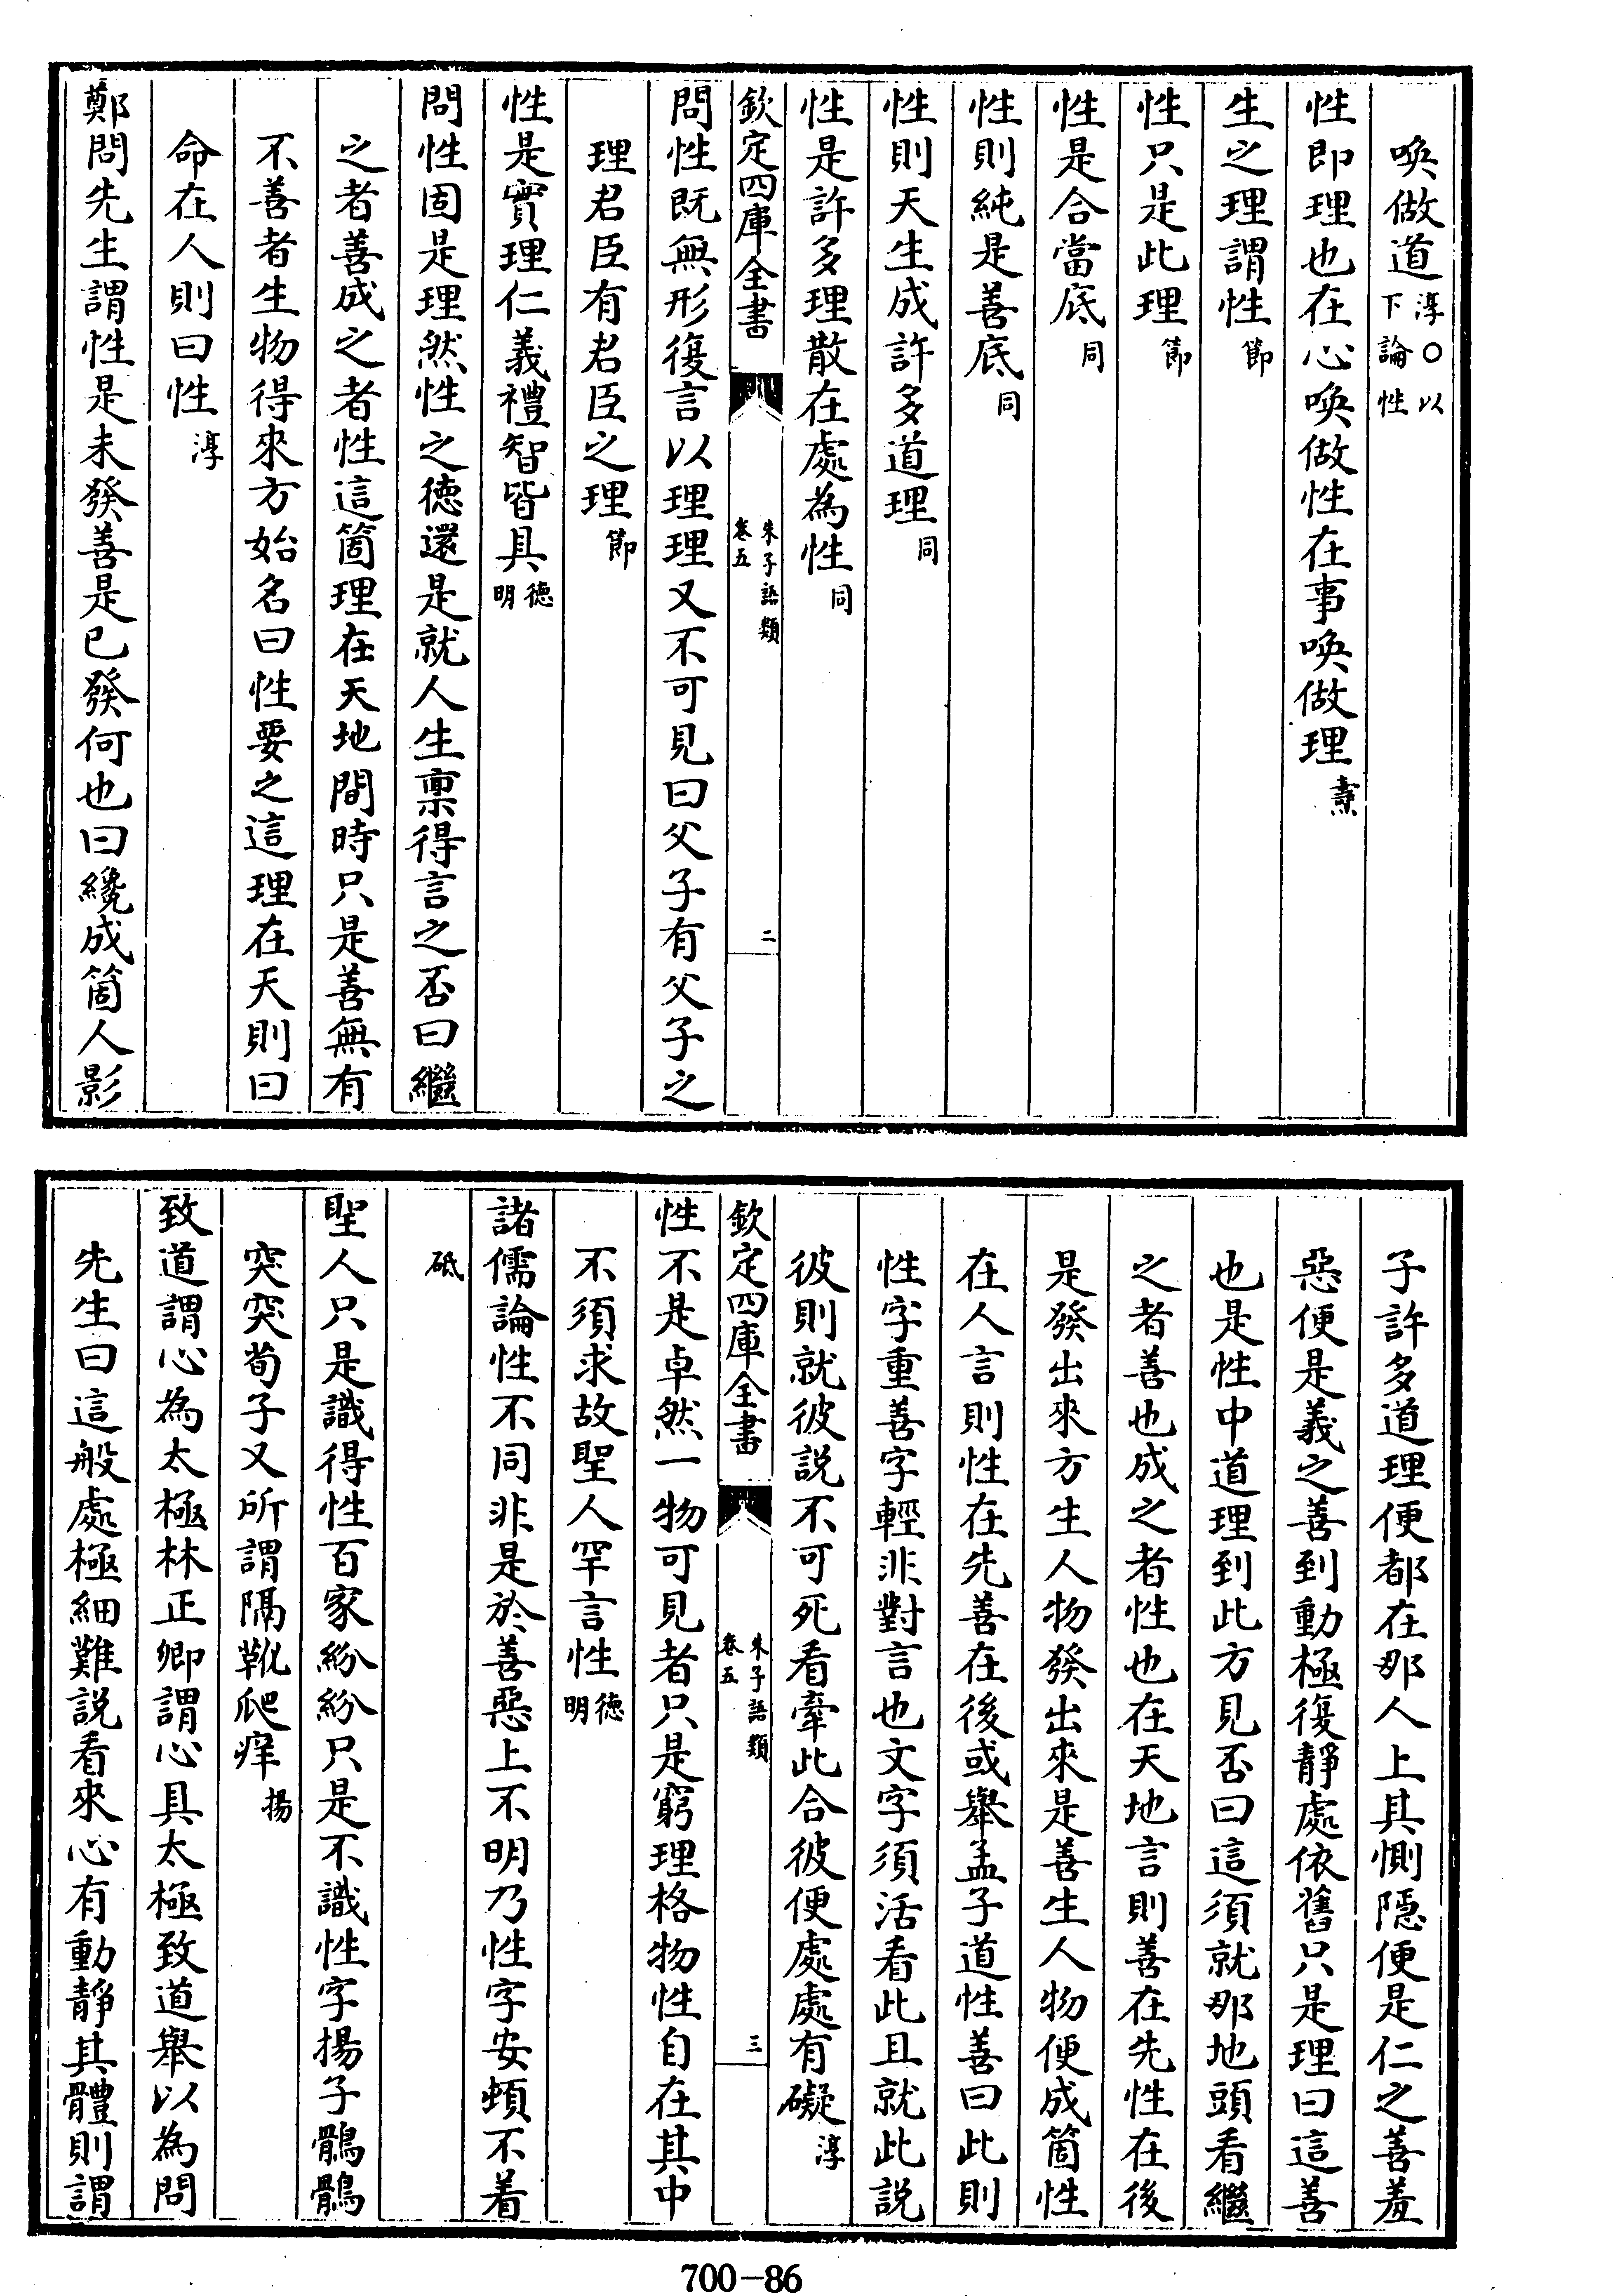 喚做道淳○以下論性
性即理也在心喚做性在事喚做理燾
生之理謂性節
性只是此理節
性是合當底同
性則純是善底同
性則天生成許多道理同
性是許多理散在處為性同
欽定四庫全書 朱子語類卷五 二
問性既無形復言以理理又不可見曰父子有父子之
理君臣有君臣之理節
性是實理仁義禮智皆具德明
問性固是理然性之德還是就人生稟得言之否曰繼
之者善成之者性這箇理在天地間時只是善無有
不善者生物得來方始名曰性要之這理在天則曰
命在人則曰性淳
鄭問先生謂性是未發善是已發何也曰纔成箇人影
子許多道理便都在那人上其惻隠便是仁之善羞
惡便是義之善到動極復靜處依舊只是理曰這善
也是性中道理到此方見否曰這須就那地頭看繼
之者善也成之者性也在天地言則善在先性在後
是發出來方生人物發出來是善生人物便成箇性
在人言則性在先善在後或舉孟子道性善曰此則
性字重善字輕非對言也文字須活看此且就此説
彼則就彼説不可死看牽此合彼便處處有礙淳
欽定四庫全書 朱子語類卷五 三
性不是卓然一物可見者只是窮理格物性自在其中
不須求故聖人罕言性德明
諸儒論性不同非是於善惡上不明乃性字安頓不着
砥
聖人只是識得性百家紛紛只是不識性字揚子鶻鶻
突突荀子又所謂隔靴爬痒揚
致道謂心為太極林正卿謂心具太極致道舉以為問
先生曰這般處極細難説看來心有動靜其體則謂
700-86